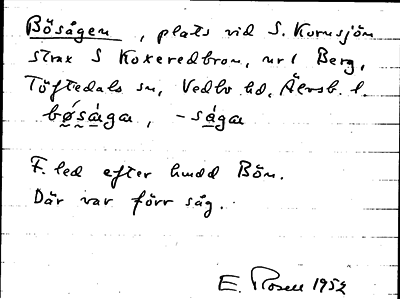 Bösågen, plats vid S. Kornsjön
strax S Koxeredbron, nr 1 Berg,
Töftedals sn, Vedbo hd, Älvsb. l.
bǿsåga, -såga
F. led efter hmdd Bön.
Där var förr såg.
E. Rosell 1952